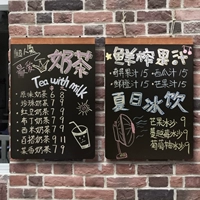 奶茶
Tea with milk
原味奶茶 6 8
珍珠奶茶 7 9
红豆奶茶 7 9
布丁奶茶 7 9
西米奶茶 7 9
鲜榨果汁
西瓜汁 15
鲜橙汁 15
芒果汁 15
夏日冰饮
芒果冰沙 9
蔓越莓冰沙 9
葡萄柚冰沙 9